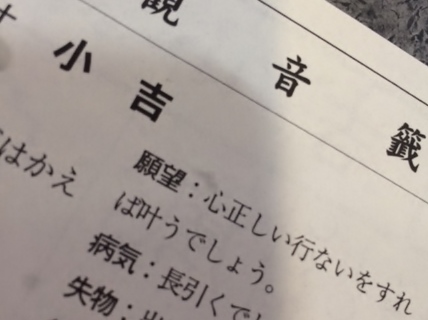 観音籤
小吉
願望：心正しい行ないをすれ
ば叶うでしょう。
病気：長引くでし
失物：出
はかえ